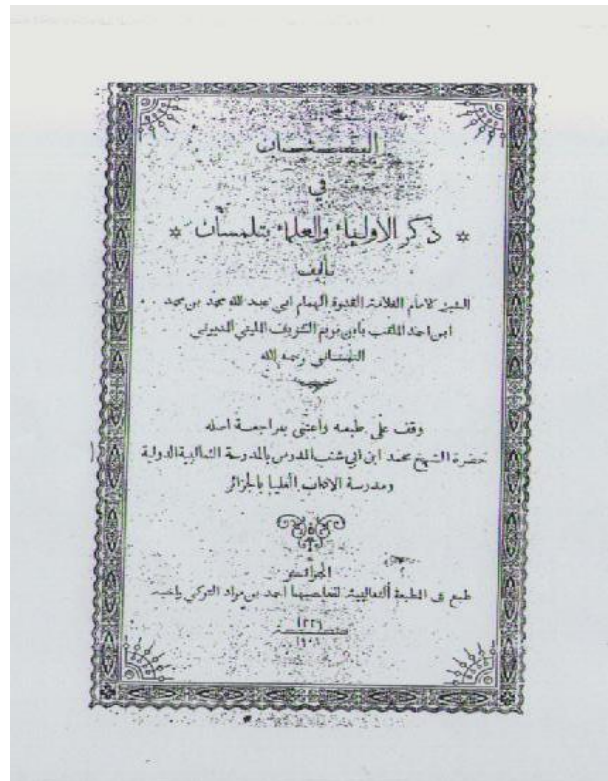 البستان
في
* ذكر الاولياء والعلماء بتلمسان *
تأليف
الشيخ الامام العلامة القدوة الهمام ابي عبد الله محمد بن محمد
ابن احمد الملقب بابن مريم الشريف المليتي المديوني
التلمساني رحمه الله
وقف على طبعه واعتنى بمراجعة اصله
حضرة الشيخ محمد ابن ابي شنب المدرس بالمدرسة الثعالبية الدولية
ومدرسة الاداب العليا بالجزائر
الجزائر
طبع في المطبعة الثعالبية لصاحبها احمد بن مراد التركي واخيه